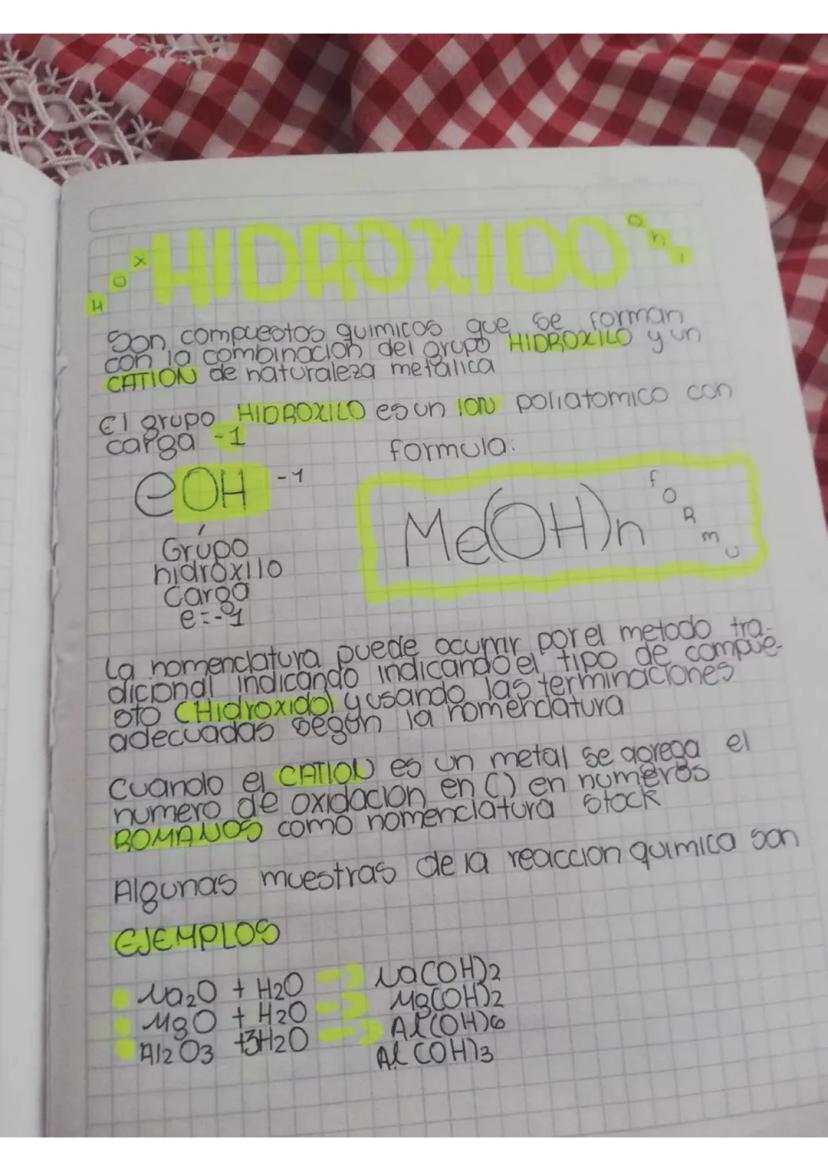 HOX HIDROXIDO oni
Son compuestos quimicos que se forman
con la combinacion del grupo HIDROXILO y un
CATION de naturaleza metalica
El grupo HIDROXILO es un ION poliatomico con
carga -1
formula:
eOH -1
Me(OH)n
FORMU
Grupo
hidroxilo
carga
e=-1
La nomenclatura puede ocurrir por el metodo tra-
dicional indicando indicando el tipo de compue-
sto (Hidroxido) y usando las terminaciones
adecuadas segun la nomenclatura
Cuando el CATION es un metal se agrega el
numero de oxidacion en () en numeros
ROMANOS como nomenclatura stock
Algunas muestras de la reaccion quimica son
EJEMPLOS
Na2O + H2O → Na(OH)2
MgO + H2O → Mg(OH)2
Al2O3 +3H2O → Al(OH)6
Al(OH)3